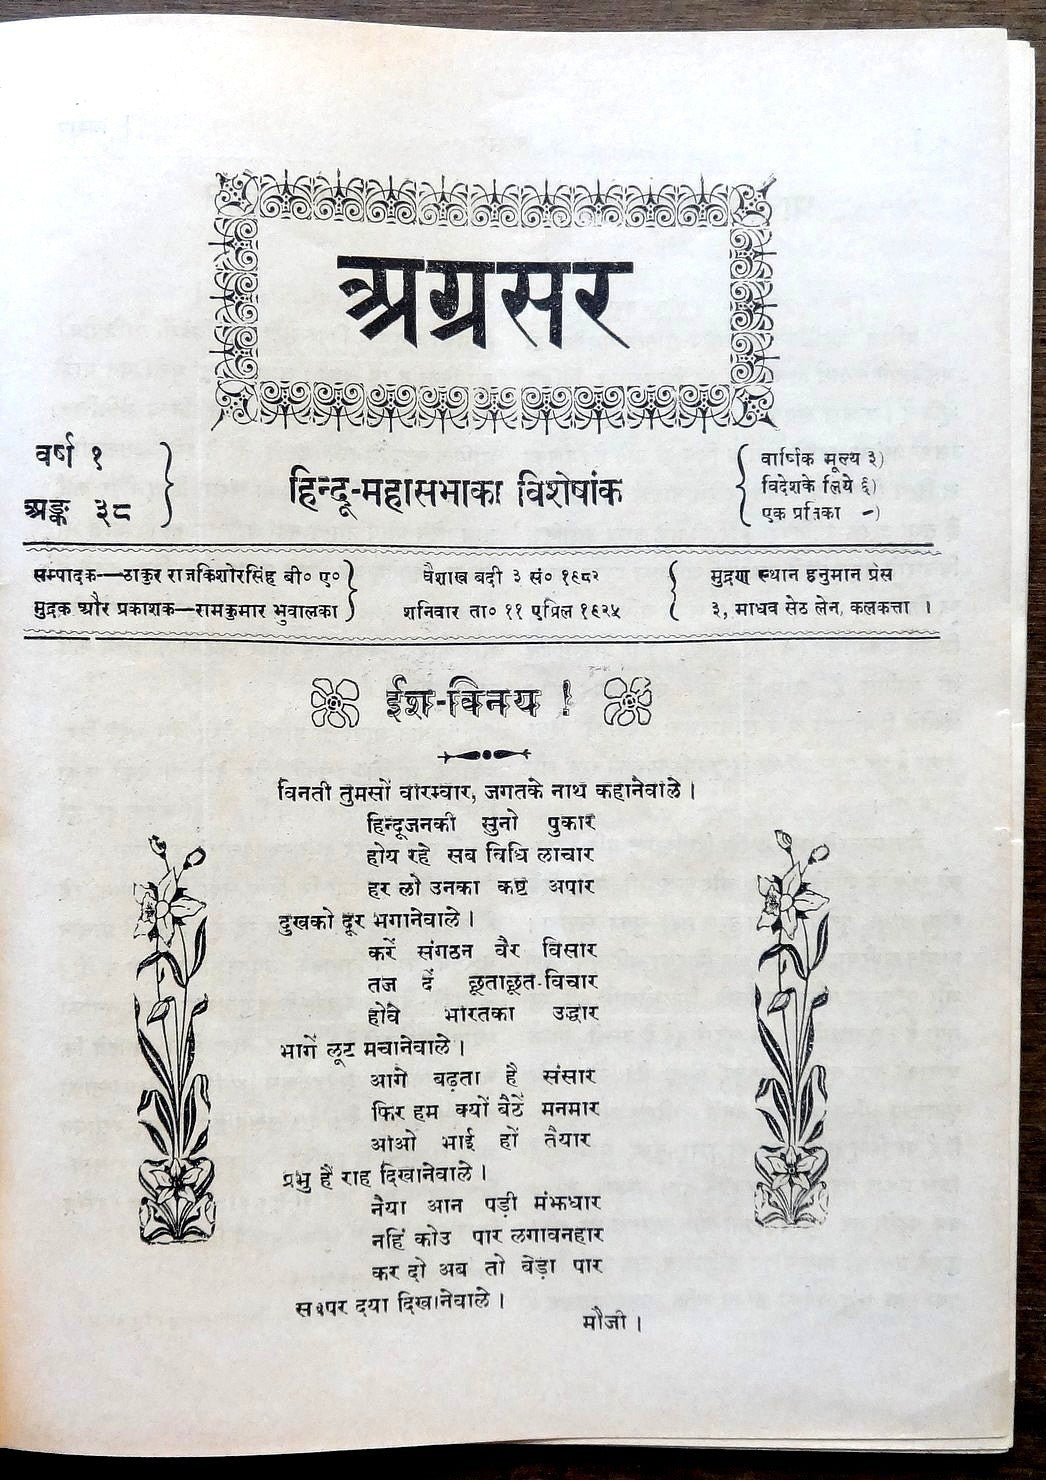 अग्रसर
वर्ष १
अङ्क ३८
हिन्दू-महासभाका विशेषांक
वार्षिक मूल्य ३)
विदेशके लिये ६)
एक प्रतिका -)
सम्पादक—ठाकुर राजकिशोरसिंह बी० ए०
मुद्रक और प्रकाशक—रामकुमार भुवालका
वैशाख बदी ३ सं० १९८२
शनिवार ता० ११ एप्रिल १९२५
मुद्रण स्थान हनुमान प्रेस
३, माधव सेठ लेन, कलकत्ता ।
ईश-विनय !
विनती तुमसों वारम्वार, जगतके नाथ कहानेवाले ।
हिन्दूजनकी सुनो पुकार
होय रहे सब विधि लाचार
हर लो उनका कष्ट अपार
दुखको दूर भगानेवाले ।
करें संगठन वैर विसार
तज दें छूताछूत-विचार
होवे भारतका उद्धार
भागें लूट मचानेवाले ।
आगे बढ़ता है संसार
फिर हम क्यों बैठें मनमार
आओ भाई हों तैयार
प्रभु हैं राह दिखानेवाले ।
नैया आन पड़ी मंझधार
नहिं कोउ पार लगावनहार
कर दो अब तो बेड़ा पार
सबपर दया दिखानेवाले ।
मौजी ।